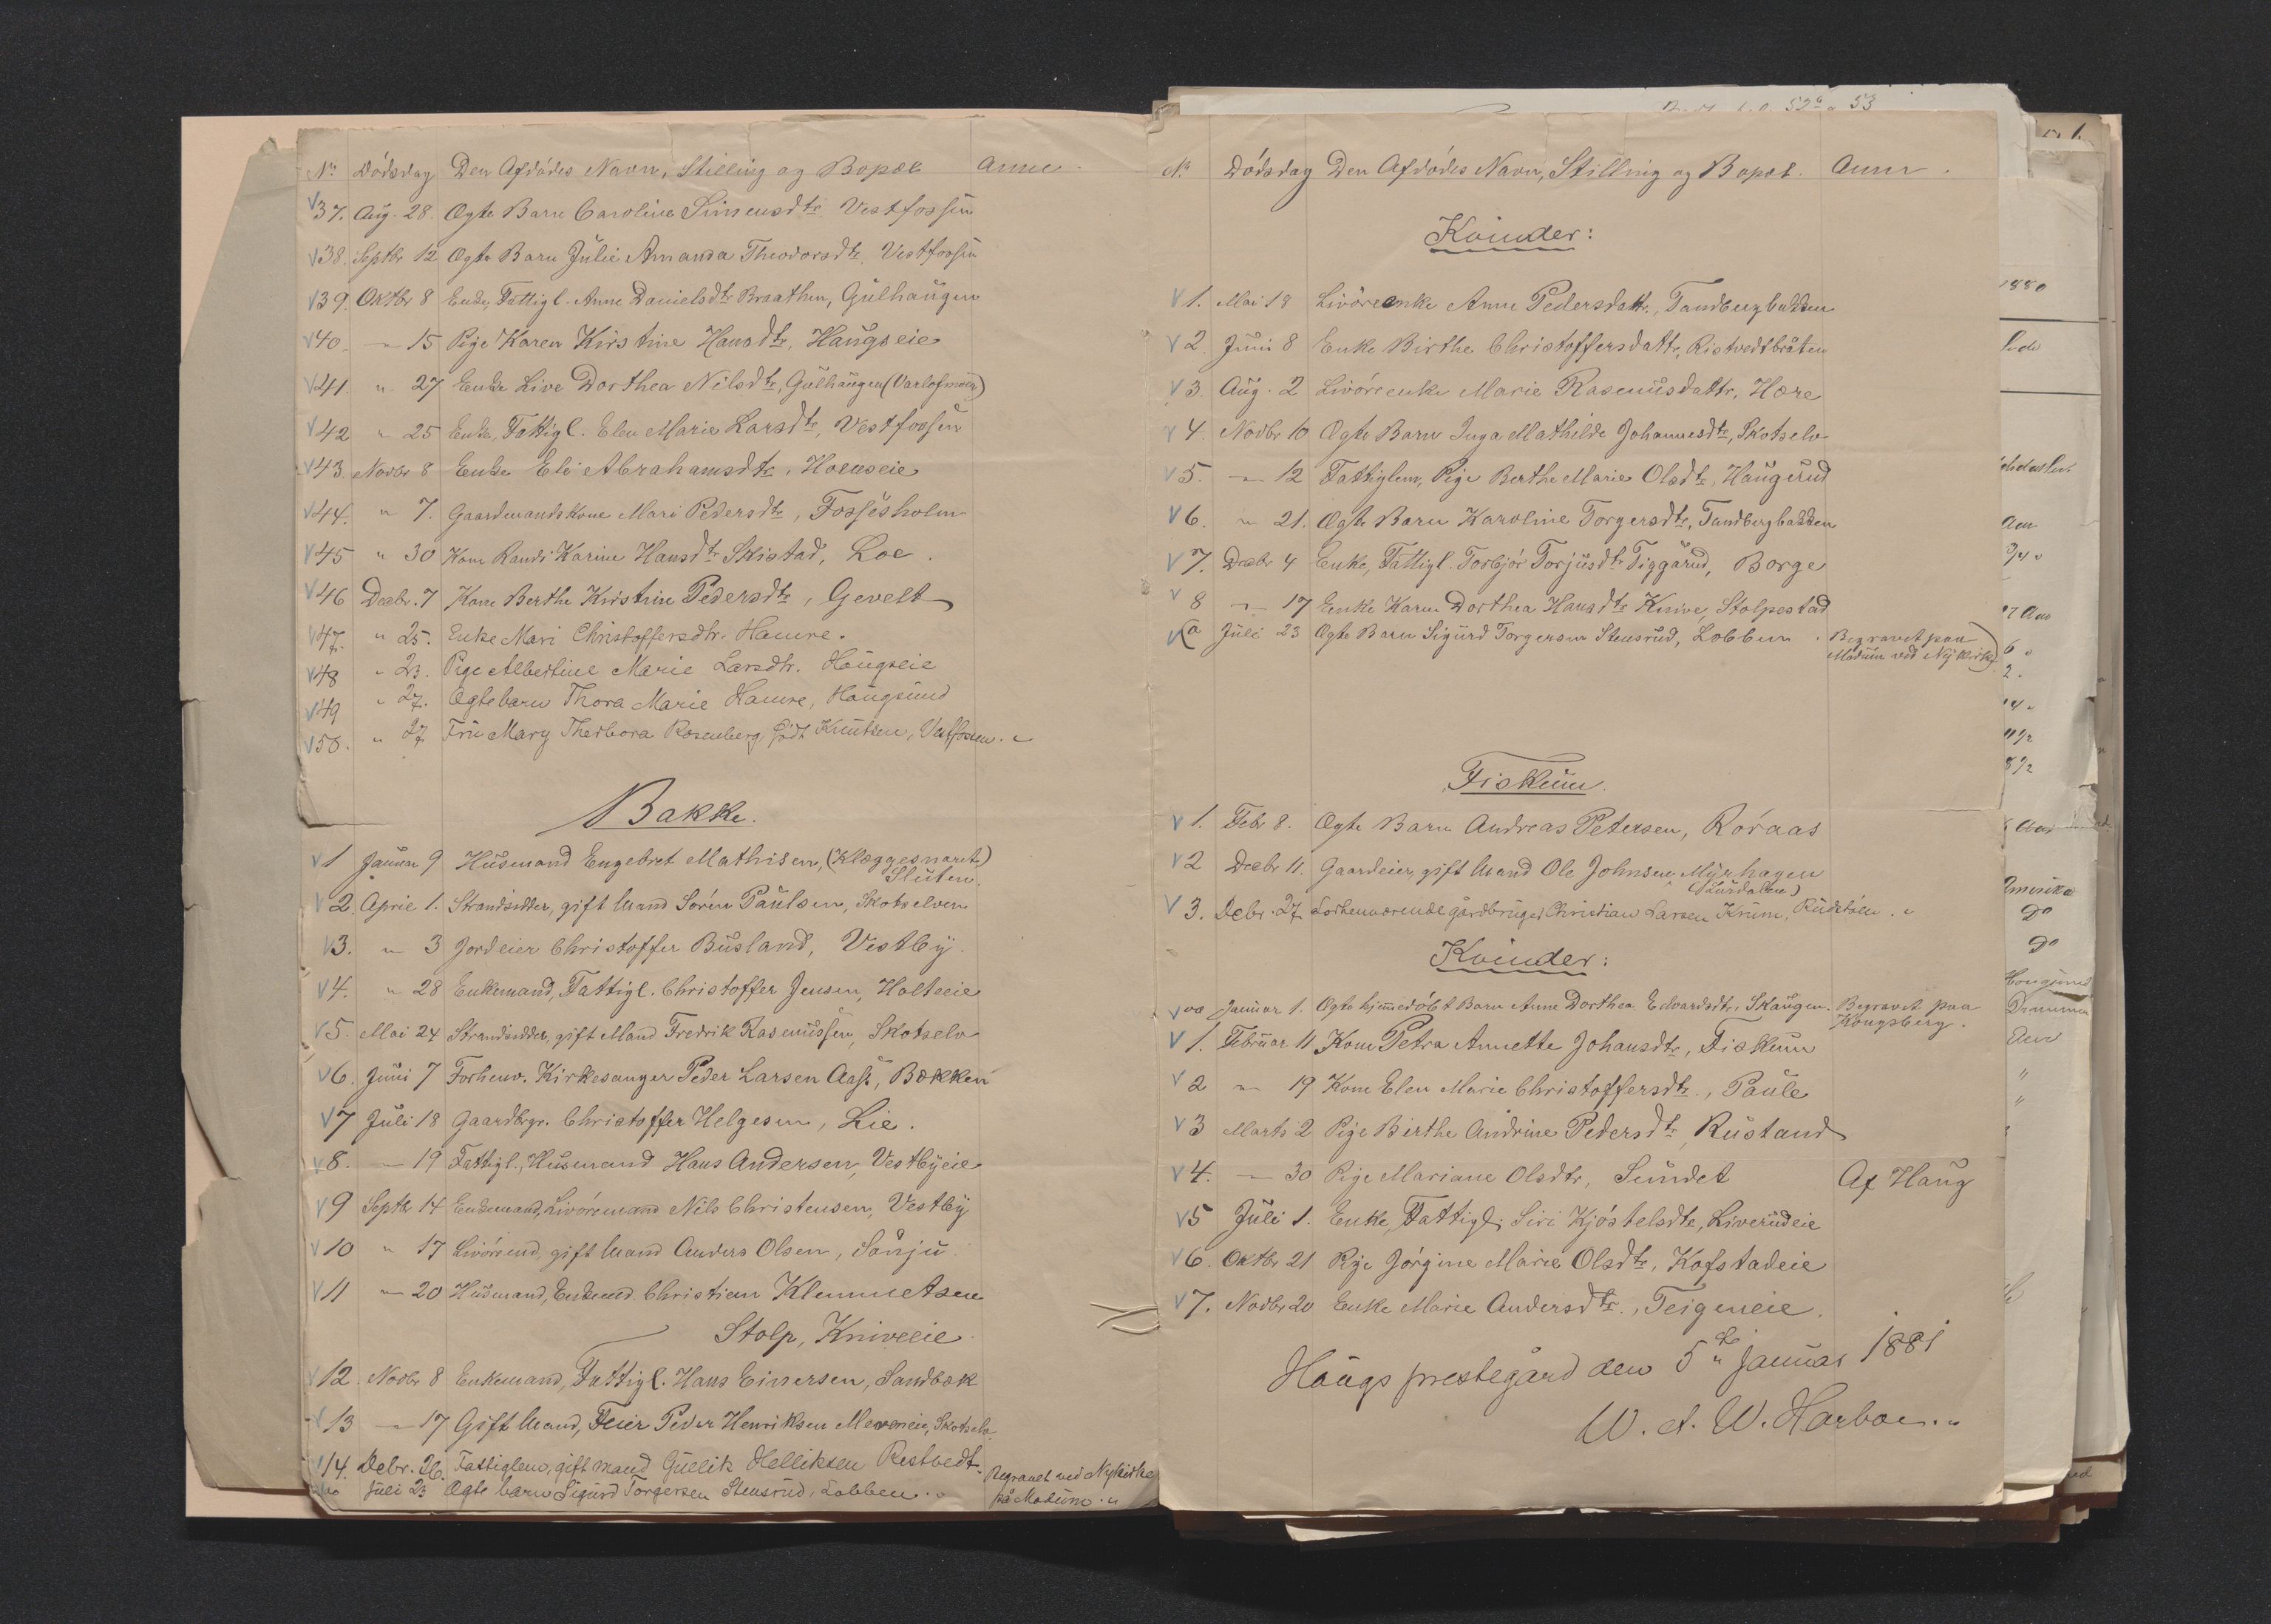 No Dödsdag Den Afdödes Navn, Stilling og Bopæl Anm
37. Aug. 28 Ægte Barn Caroline Simensdtr. Vestfossen
38. Septbr 12 Ægte Barn Julie Amanda Theodorsdtr. Vestfossen
39. Oktbr 8 Enke, Fattigl. Anne Danielsdtr Braathen, Gulhaugen
40. " 15 Pige Karen Kirstine Hansdtr, Haugseie
41. " 27 Enke Live Dorthea Nilsdtr, Gulhaugen
42 " 25 Enke, Fattigl. Elen Marie Larsdtr, Vestfossen
43. Novbr 8 Enke Eli Abrahamsdtr, Hoenseie
44. " 7. Gaardmandskone Mari Pedersdtr, Fossesholm
45 " 30 Kone Randi Karine Hansdtr Skistad, Loe.
46 Decbr. 7 Kone Berthe Kirstine Pedersdtr, Gevelt
47. " 25. Enke Mari Christoffersdtr. Hamre.
48 " 23. Pige Albertine Marie Larsdtr. Haugseie
49 " 27. Ægtebarn Thora Marie Hamre, Haugsund
50. " 27. Fru Mary Therbora Rosenberg födt Knutsen, Vestfossen.
Bakke.
1 Januar 9 Husmand Engebret Mathisen, (Klæggesnaret)
Sluten.
2. April 1. Strandsidder, gift Mand Sören Paulsen, Skotselven
3. " 3 Jordeier Christoffer Busland, Vestby.
4. " 28 Enkemand, Fattigl. Christoffer Jensen, Holteeie
5. Mai 24 Strandsidder, gift Mand Fredrik Rasmussen, Skotselv
6. Juni 7 Forhenv. Kirkesanger Peder Larsen Aass, Bækken
7 Juli 18 Gaardbgr. Christoffer Helgesen, Lie.
8. " 19 Fattigl., Husmand Hans Andersen, Vestbyeie
9 Septbr 14 Enkemand, Livöremand Nils Christensen, Vestby
10 " 17 Livörmd, gift Mand Anders Olsen, Sånju
11 " 20 Husmand, Enkemd. Christian Klemmetsen
Stolp, Kniveeie.
12. Novbr 8 Enkemand, Fattigl. Hans Einersen, Sandbæk
13 " 17 Gift Mand, Feier Peder Henriksen Moeneie, Skotselv.
14. Debr. 26. Fattiglem, gift mand Gullik Helliksen Restvedt.
Juli 23 Ægte barn Sigurd Torgersen Stensrud, Lobben. Begravet ved Nykirke
på Modum.
No Dödsdag Den Afdödes Navn, Stilling og Bopæl. Anm.
Kvinder:
1. Mai 18 Livöreenke Anne Pedersdattr., Tandbergbakken
2. Juni 8 Enke Birthe Christoffersdattr, Ristvedtbråten
3. Aug. 2 Livöreenke Marie Rasmusdattr, Hære
4. Novbr 10 Ægte Barn Inga Mathilde Johannesdtr, Skotselv
5. " 12 Fattiglem, Pige Berthe Marie Olsdtr, Haugerud
6. " 21. Ægte Barn Karoline Torgersdtr, Tandbergbakken
7. Decbr 4 Enke, Fattigl. Torbjör Torjusdtr Tiggärud, Borge
8 " 17 Enke Karen Dorthea Hansdtr Knive, Stolpestad
(a Juli 23 Ægte Barn Sigurd Torgersen Stensrud, Lobben. Begravet paa
Modum ved Nykirke)
Fiskum.
1. Febr 8. Ægte Barn Andreas Petersen, Röraas
2 Decbr 11. Gaardeier, gift Mand Ole Johnsen Myrhagen
(Lurdalen)
3. Debr. 27. Forhenværende gårdbruger Christian Larsen Krum, Rudstöen.
Kvinder:
oo Januar 1. Ægte hjemmedöbt Barn Anne Dorthea Edvardsdtr, Skaugen. Begravet paa
Kongsberg.
1. Februar 11 Kone Petra Annette Johansdtr, Fiskum
2 " 19 Kone Elen Marie Christoffersdtr., Paule
3 Marts 2 Pige Birthe Andrine Pedersdtr, Rustand
4. " 30 Pige Mariane Olsdtr, Sundet Af Haug
5 Juli 1. Enke, Fattigl. Siri Kjöstelsdtr, Liverudeie
6. Oktbr 21 Pige Jörgine Marie Olsdtr, Kofstadeie
7. Novbr 20 Enke Marie Andersdtr., Teigeneie.
Haugs prestegård den 5te Januar 1881
W. A. W. Harboe.